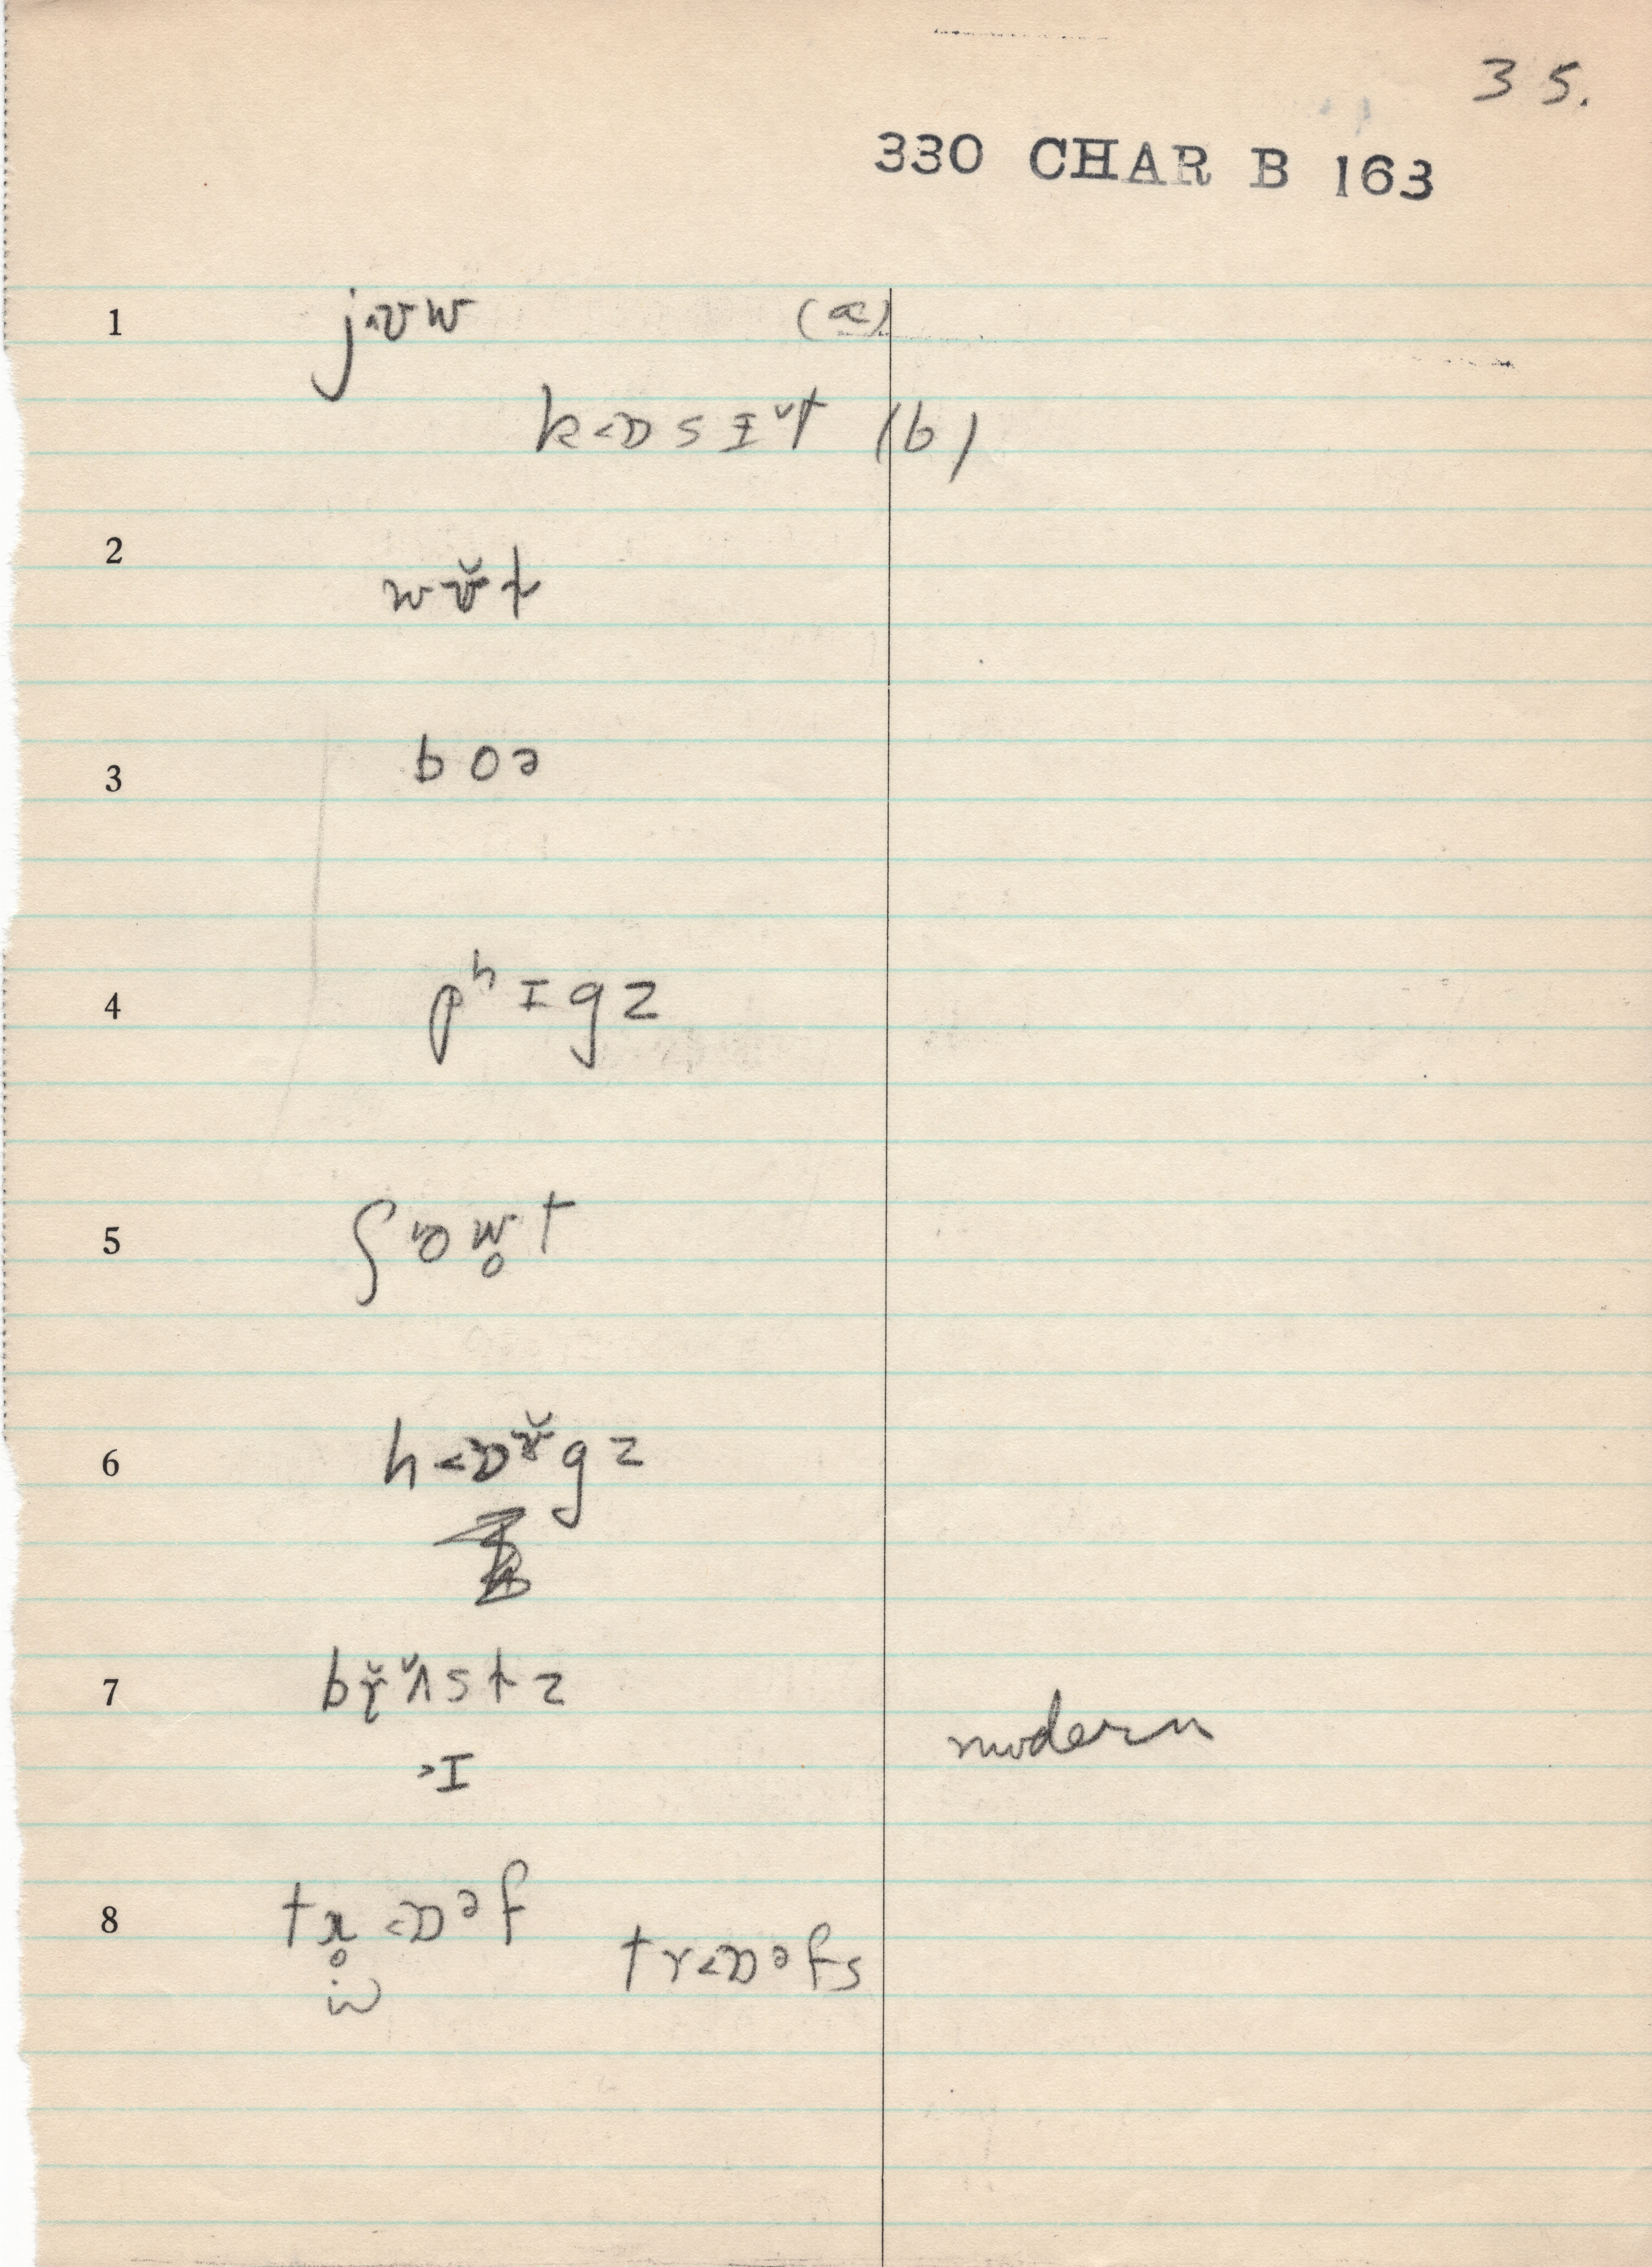 35.
330 CHAR B 163
1 j˄ʊw (a)
k<ɒsɪ̆t (b)
2 wʊ̆t
3 boə
4 pʰɪgz
5 ʃow̥t
6 h<ɒɤ̆gz
7 bɤ̆ʌ̆stz
>I modern
8 tɹ̥<ɒᵊf
tr<ɒᵊfs